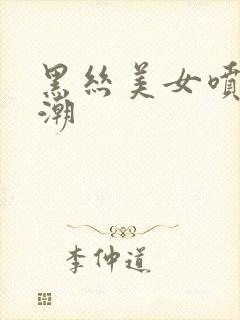 黑丝美女噴
潮
李仲道